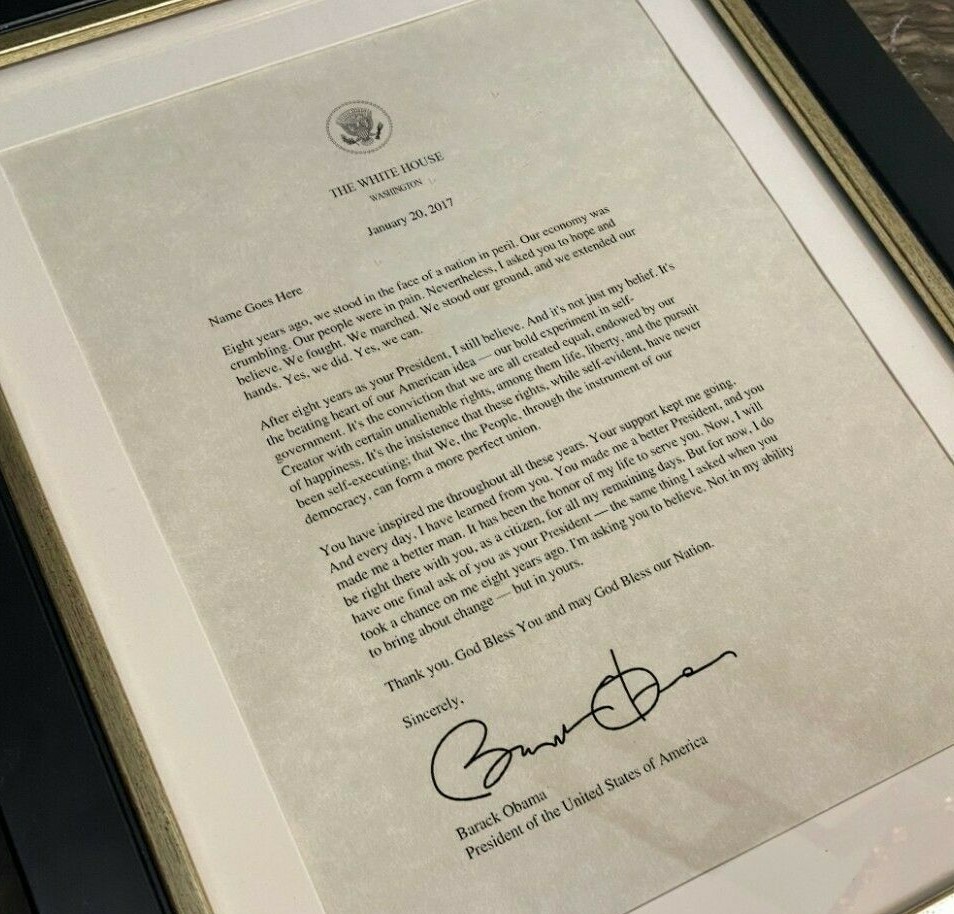 THE WHITE HOUSE
WASHINGTON
January 20, 2017
Name Goes Here
Eight years ago, we stood in the face of a nation in peril. Our economy was
crumbling. Our people were in pain. Nevertheless, I asked you to hope and
believe. We fought. We marched. We stood our ground, and we extended our
hands. Yes, we did. Yes, we can.
After eight years as your President, I still believe. And it's not just my belief. It's
the beating heart of our American idea — our bold experiment in self-
government. It's the conviction that we are all created equal, endowed by our
Creator with certain unalienable rights, among them life, liberty, and the pursuit
of happiness. It's the insistence that these rights, while self-evident, have never
been self-executing; that We, the People, through the instrument of our
democracy, can form a more perfect union.
You have inspired me throughout all these years. Your support kept me going.
And every day, I have learned from you. You made me a better President, and you
made me a better man. It has been the honor of my life to serve you. Now, I will
be right there with you, as a citizen, for all my remaining days. But for now, I do
have one final ask of you as your President — the same thing I asked when you
took a chance on me eight years ago. I'm asking you to believe. Not in my ability
to bring about change — but in yours.
Thank you. God Bless You and may God Bless our Nation.
Sincerely,
Barack Obama
President of the United States of America